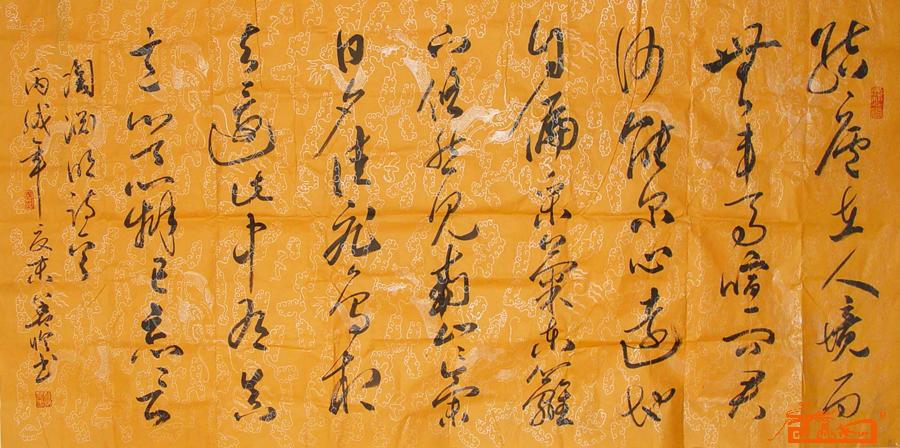 結廬在人境而
無車馬喧問君
何能尔心遠地
自偏采菊東籬
下悠然見南山山氣
日夕佳飛鳥相
与還此中有真
意欲辨已忘言
陶淵明詩
丙戌年夏末书